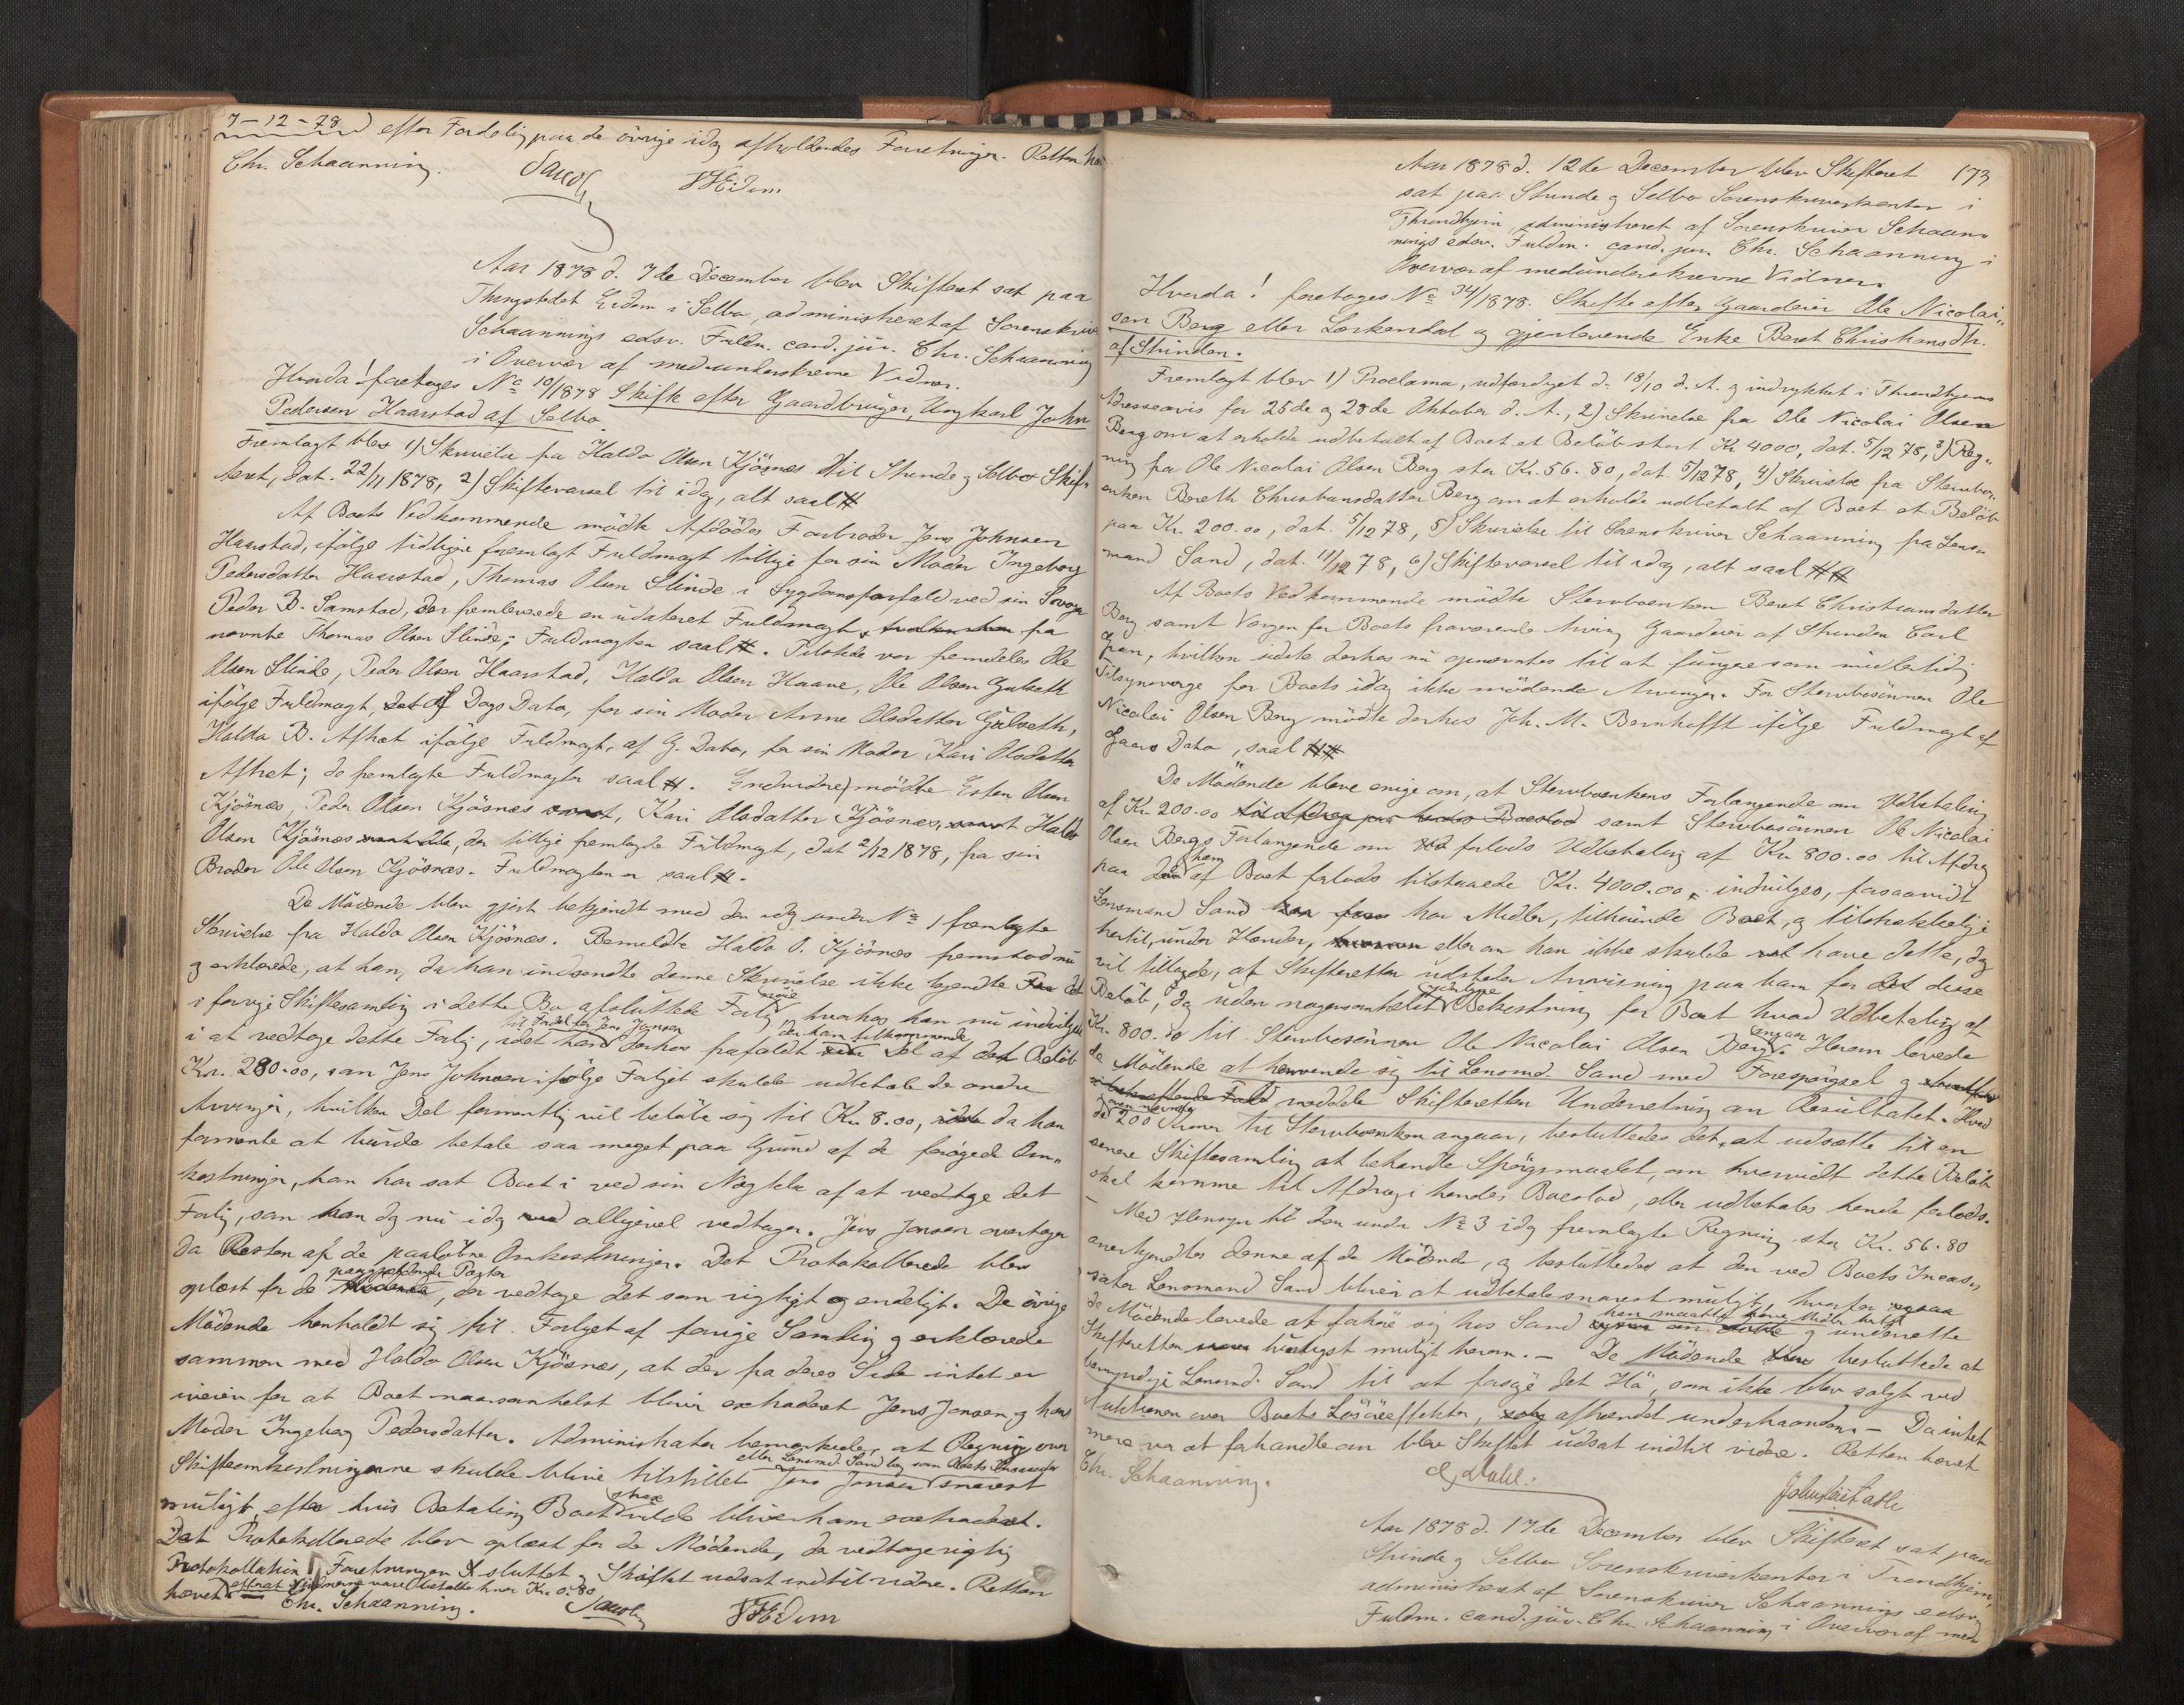 7-12-78 efter Fordeling paa de övrige idag afholdendes Forretninger. Retten hæ
Chr. Schaanning. Jacob HEidem
Aar 1878 d. 7de December blev Skifteret sat paa
Thingstedet Eidem i Selbo, administreret af Sorenskriv
Schaannings edsv. Fuldm. cand. jur. Chr. Schaanning
i Overvær af medunderskrevne Vidner.
Hvorda! foretoges No 10/1878 Skifte efter Gaardbruger, Ungkarl John
Pedersen Haarstad af Selbo.
Fremlagt blev 1) Skrivelse fra Haldo Olsen Kjösnes til Strinde og Selbo Skif-
teret, dat. 22/11 1878, 2) Skiftevarsel til idag, alt saal #
Af Boets Vedkommende mödte Afdödes Farbroder Jens Johnsen
Haarstad, ifölge tidligere fremlagt Fuldmagt tillige for sin Moder Ingeborg
Pedersdatter Haarstad, Thomas Olsen Slinde i Sygdomsforfald ved sin Svoger
Peder B. Samstad, der fremleverede en udateret Fuldmagt fra
nævnte Thomas Olsen Slinde; Fuldmagten saal #. Tilstede var fremdeles Ole
Olsen Slinde, Peder Olsen Haarstad, Haldo Olsen Haave, Ole Olsen Gulseth
ifölge Fuldmagt, dat af Dags Dato, for sin Moder Anne Olsdatter Gulseth,
Haldo B. Aftret ifölge Fuldmagt, af G. Dato, for sin Moder Kari Olsdatter
Aftret; de fremlagte Fuldmagter saal #. Endvidere mödte Esten Olsen
Kjösnes, Peder Olsen Kjösnes samt, Kari Olsdatter Kjösnes, samt Haldo
Olsen Kjösnes, der tillige fremlagde Fuldmagt, dat 2/12 1878, fra sin
Broder Ole Olsen Kjösnes. Fuldmagten er saal #.
De Mödende blev gjort bekjendt med den idag under No 1 fremlagte
Skrivelse fra Haldo Olsen Kjösnes. Bemeldte Haldo O. Kjösnes fremstod nu
og erklærede, at han, da han indsendte denne Skrivelse ikke kjendte det
i forrige Skiftesamling i dette Bo afsluttede Forlig nöie, hvorhos han nu indvilgede
i at vedtage dette Forlig, idet han til Fordel for Jens Jonsen derhos frafaldt den ham tilkommende Del af det Belöb
Kr. 280.00, som Jens Johnsen ifölge Forliget skulde udbetale de andre
Arvinger, hvilken Del formentlig vil belöbe sig til Kr. 8.00, da han
formente at burde betale saa meget paa Grund af de forögede Om-
kostninger, han har sat Boet i ved sin Nægtelse af at vedtage det
Forlig, som han dog nu idag alligevel vedtager. Jens Jonsen overtager
da Resten af de paalöbne Omkostninger. Det Protokollerede blev
oplæst for de paagjældende Parter, der vedtage det som rigtigt og endeligt. De övrige
Mödende henholdt sig til Forliget af forrige Samling og erklærede
sammen med Haldo Olsen Kjösnes, at der fra deres Side intet er
iveien for at Boet naarsomhelst bliver extraderet Jens Jonsen og hans
Moder Ingeborg Pedersdatter. Administrator bemærkede, at Regning over
Skifteomkostningerne skulde blive tilstillet Jens Jonsen eller Lensmd. Sand som Boets Incassator snarest
muligt, efter hvis Betaling Boet strax vilde blive ham extraderet.
Det Protokollerede blev oplæst for de Mödende, de vedtoge rigtig
Protokollation. Forretningen sluttet og Skiftet udsat indtil videre. Retten
hævet efterat Vidnerne vare betalte hver Kr. 0.80
Chr. Schaanning. Jacob HEidem
Aar 1878 d. 12te December blev Skifteret 173
sat paa Strinde og Selbo Sorenskriverkontor i
Throndhjem, administreret af Sorenskriver Schaan-
nings edsv. Fuldm. cand. jur. Chr. Schaanning i
Overvær af medunderskrevne Vidner.
Hvorda! foretoges No 34/1878. Skifte efter Gaardeier Ole Nicolai-
sen Berg eller Lerkendal og gjenlevende Enke Beret Christiansdtr.
af Strinden.
Fremlagt blev 1) Proclama, udfærdiget d. 18/10 d. A. og indrykket i Throndhjems
Adresseavis for 25de og 28de Oktober d. A., 2) Skrivelse fra Ole Nicolai Olsen
Berg om at erholde udbetalt af Boet et Belöb stort Kr 4000, dat. 5/12 78, 3) Reg-
ning fra Ole Nicolai Olsen Berg stor Kr. 56.80, dat. 5/12 78, 4) Skrivelse fra Stervbo-
enken Bereth Christiansdatter Berg om at erholde udbetalt af Boet et Belöb
paa Kr. 200.00, dat. 5/12 78, 5) Skrivelse til Sorenskriver Schaanning fra Lens-
mand Sand, dat. 11/12 78, 6) Skiftevarsel til idag, alt saal ##
Af Boets Vedkommende mödte Stervboenken Beret Christiansdatter
Berg samt Vergen for Boets fraværende Arving Gaardeier af Strinden Carl
Gran, hvilken sidste derhos nu opnævntes til at fungere som midlertidig
Tilsynsverge for Boets idag ikke mödende Arvinger. For Stervbosönnen Ole
Nicolai Olsen Berg mödte derhos Joh. M. Bernhofft ifölge Fuldmagt af
Gaars Dato, saal ##
De Mödende bleve enige om, at Stervboenkens Forlangende om Udbetaling
af Kr. 200.00 til Afdrag paa hendes Boeslod samt Stervbosönnen Ole Nicolai
Olsen Bergs Forlangende om forlods Udbetaling af Kr. 800.00 til Afdrag
paa de ham af Boet forlods tilstaaede Kr. 4000.00, indvilges, forsaavidt
Lensmand Sand har Midler, tilhörende Boet, og tilstrækkelige
hertil, under Hænder, eller om han ikke skulde have dette, dog
vil tillade, at Skifteretten udsteder Anvisning paa ham for disse
Belöb, dog uden nogensomhelst yderligere Bekostning for Boet hvad Udbetaling af
Kr. 800.00 til Stervbosönnen Ole Nicolai Olsen Berg angaar. Herom lovede
de Mödende at henvende sig til Lensmd. Sand med Forespörgsel og
meddele Skifteretten Underretning om Resultatet. Hvad
de ovennævnte 200 Kroner til Stervboenken angaar, besluttedes det, at udsætte til en
senere Skiftesamling at behandle Spörgsmaalet, om hvorvidt dette Belöb
skal komme til Afdrag i hendes Boeslod, eller udbetales hende forlods.
- Med Hensyn til den under No 3 idag fremlagte Regning stor Kr. 56.80
anerkjendtes denne af de Mödende, og besluttedes at den ved Boets Incas-
sator Lensmand Sand bliver at udbetale snarest muligt, hvorfor ogsaa
de Mödende lovede at forhöre sig hos Sand han maatte have Midler hertil og underrette
Skifteretten hurtigst muligt herom. - De Mödende besluttede at
bemyndige Lensmd. Sand til at faa det Hö, som ikke blev solgt ved
Auktionen over Boets Lösöreeffekter, afhændet underhaanden. - Da intet
mere var at forhandle om blev Skiftet udsat indtil videre. Retten hævet
Chr. Schaanning. O, Dahl.
Aar 1878 d. 17de December blev Skifteret sat paa
Strinde og Selbu Sorenskriverkontor i Trondhjem,
administreret af Sorenskriver Schaannings edsv.
Fuldm. cand. jur. Chr. Schaanning i Overvær af med-